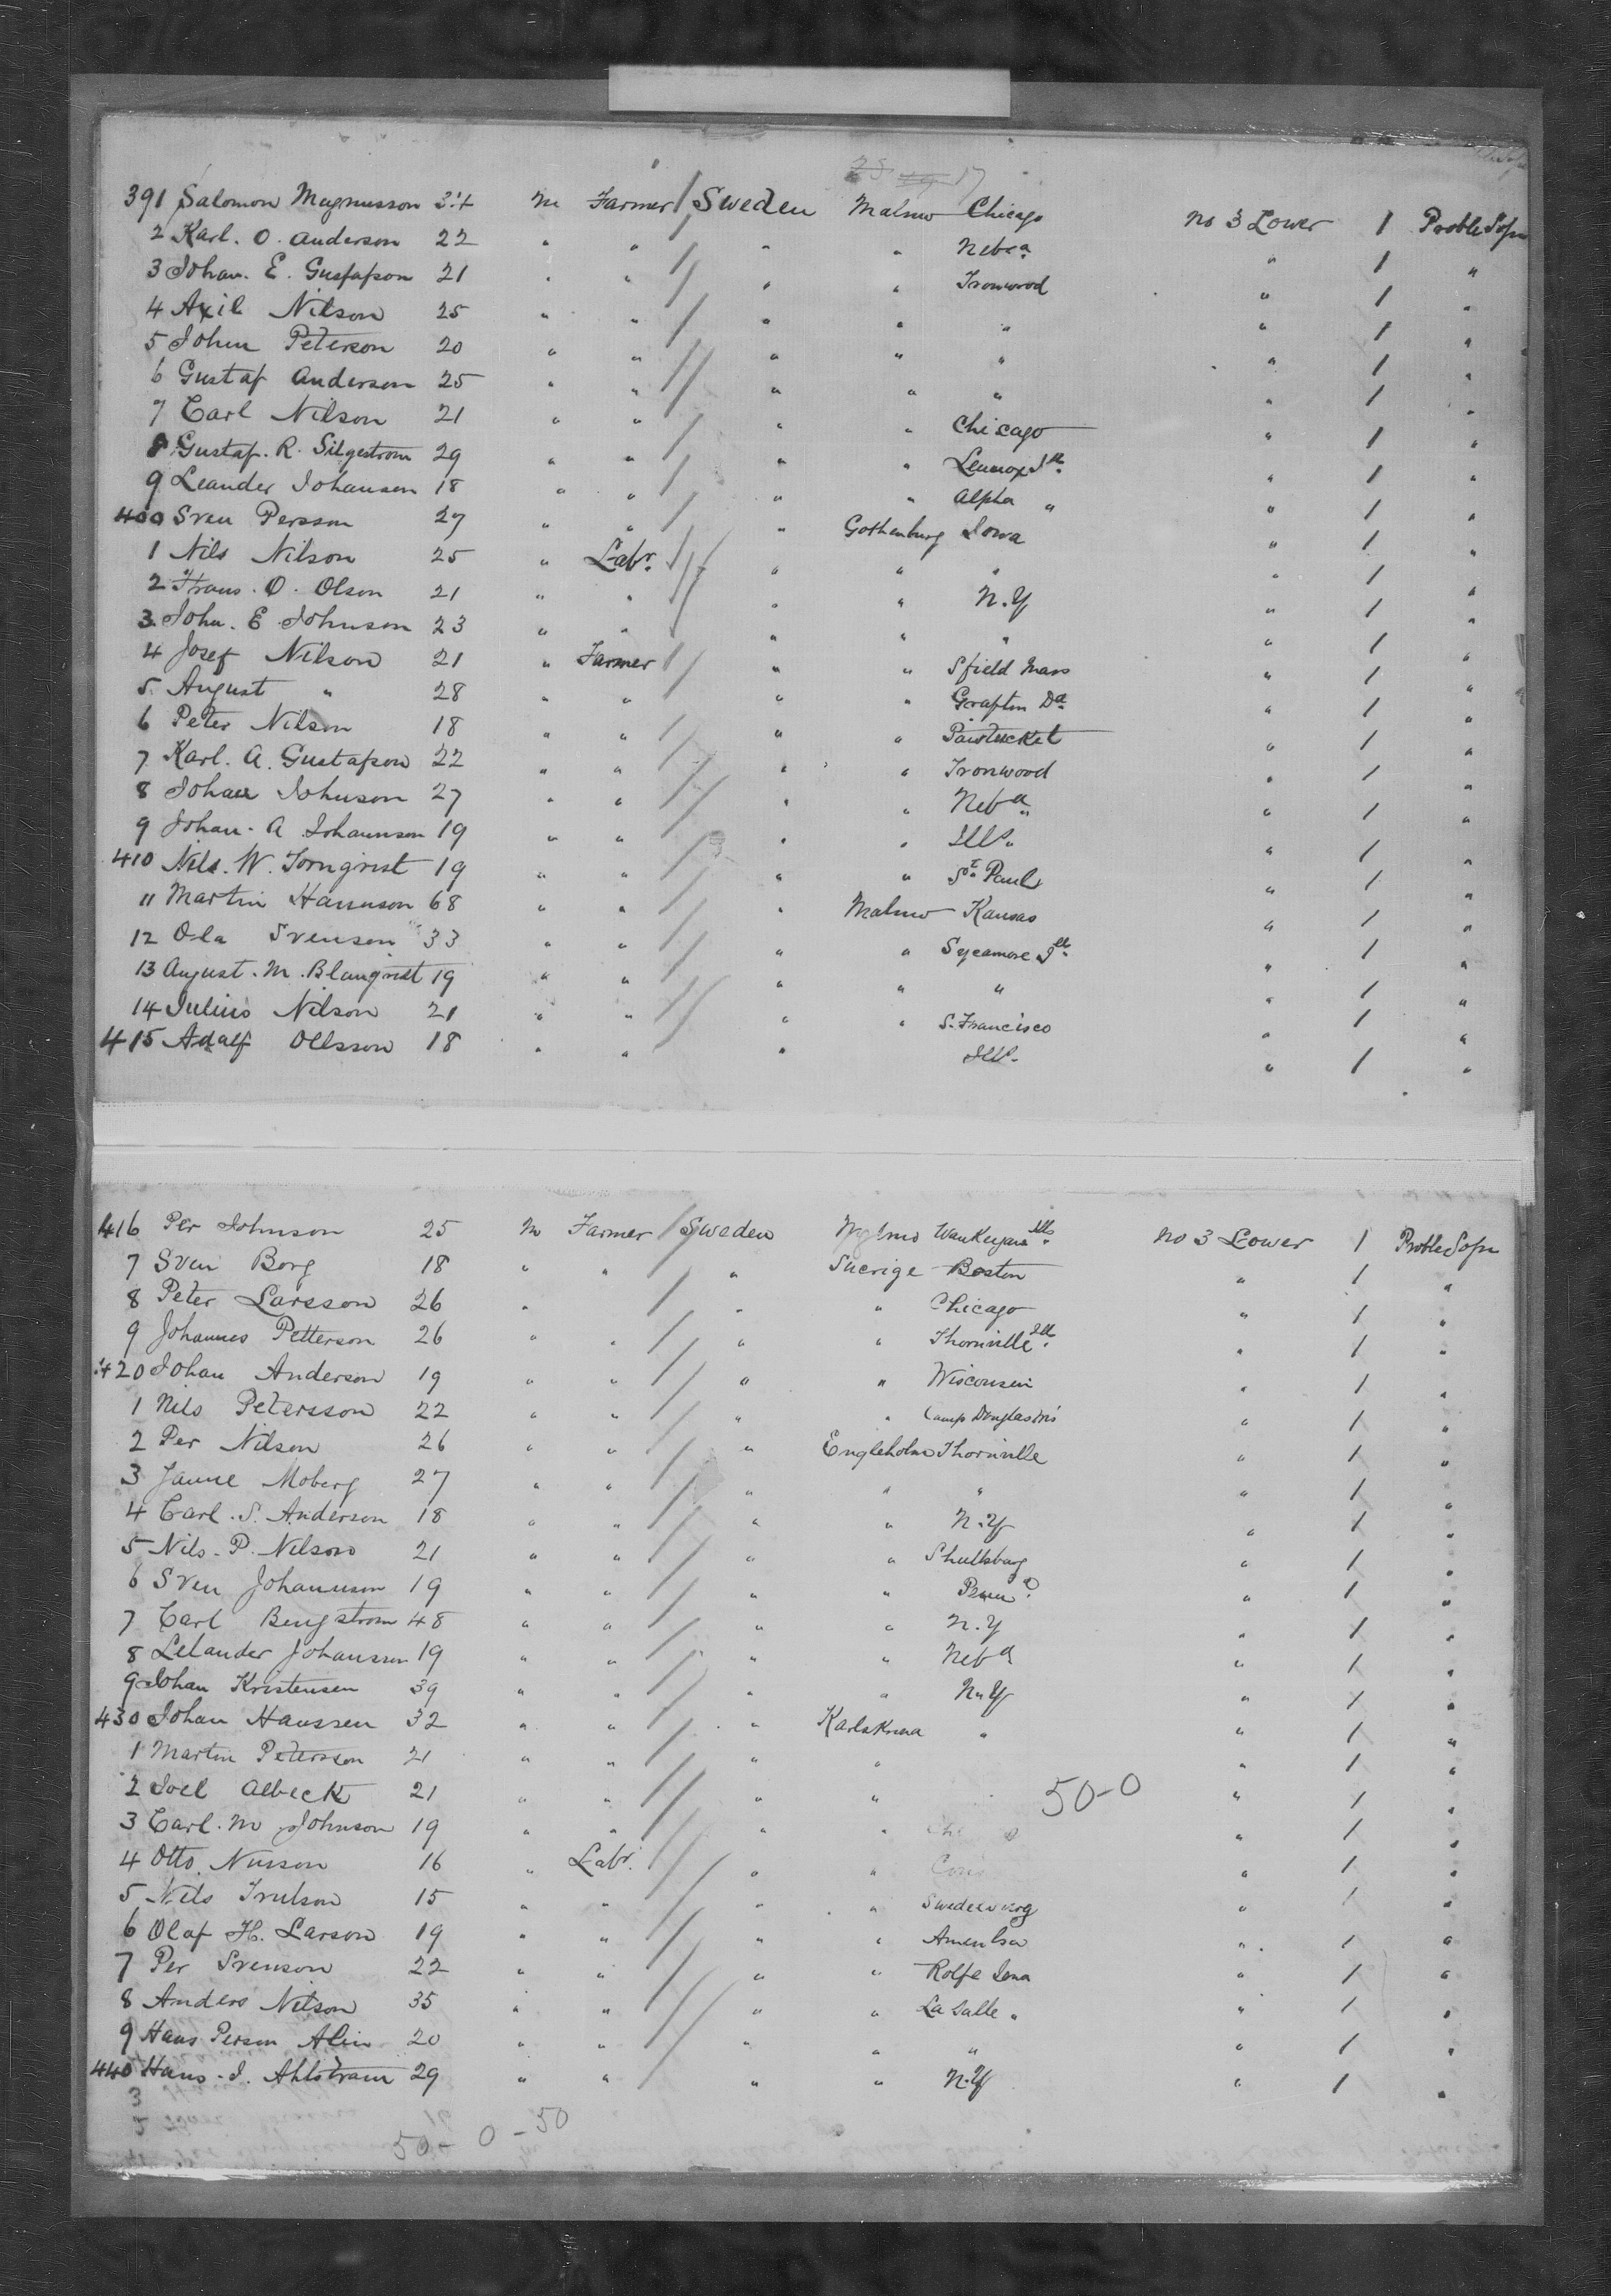 17
391 Salomon Magnusson 34 M Farmer / Sweden Malmo Chicago No 3 Lower 1 Proble Sojn
2 Karl. O. Anderson 22 " " / " " Neba " 1 "
3 Johan. E. Gustafson 21 " " / " " Ironwood " 1 "
4 Axil Nilson 25 " " / " " " " 1 "
5 John Peterson 20 " " / " " " " 1 "
6 Gustaf Anderson 25 " " / " " " " 1 "
7 Carl Nilson 21 " " / " " Chicago " 1 "
8 Gustaf. R. Silgestrom 29 " " / " " Lennox Ill " 1 "
9 Leander Johansen 18 " " / " " Alpha " " 1 "
400 Sven Persson 27 " " / " Gothenburg Iowa " 1 "
1 Nils Nilson 25 " Labr. / " " " " 1 "
2 Frans. O. Olson 21 " " / " " N.Y " 1 "
3 John. E Johnson 23 " " / " " " " 1 "
4 Josef Nilson 21 " Farmer / " " Sfield Mass " 1 "
5 August " 28 " " / " " Grafton Da " 1 "
6 Peter Nilson 18 " " / " " Pawtucket " 1 "
7 Karl. A. Gustafson 22 " " / " " Ironwood " 1 "
8 Johan Johnson 27 " " / " " Neba " 1 "
9 Johan. A Johannson 19 " " / " " Ills. " 1 "
410 Nils. W. Tornqrist 19 " " / " " St. Paul " 1 "
11 Martin Hannson 68 " " / " Malmo Kansas " 1 "
12 Ola Svenson 33 " " / " " Sycamore Ill " 1 "
13 August. M. Blanqrist 19 " " / " " " " 1 "
14 Julius Nilson 21 " " / " " S. Francisco " 1 "
415 Adalf Ollsson 18 " " / " Ills. " 1 "
416 Per Johnson 25 M Farmer / Sweden Malmo Ills. No 3 Lower 1 Proble Sojn
7 Sven Borg 18 " " / " Suerige Boston " 1 "
8 Peter Larsson 26 " / " " Chicago " 1 "
9 Johannes Petterson 26 " " / " " Thornville Ill. " 1 "
420 Johan Anderson 19 " " / " " Wisconsin " 1 "
1 Nils Petersson 22 " " / " " Camp Douglas Wis " 1 "
2 Per Nilson 26 " " / " Engleholm Thornville " 1 "
3 Janne Moberg 27 " " / " " " " 1 "
4 Carl. S. Anderson 18 " " / " " N.Y " 1 "
5 Nils. P. Nelson 21 " " / " " Shullsburg " 1 "
6 Sven Johannson 19 " " / " " Penn " 1 "
7 Carl Bengstrom 48 " " / " " N.Y " 1 "
8 Lelander Johansson 19 " " / " " Neba " 1 "
9 Johan Kristensen 39 " " / " " N.Y " 1 "
430 Johan Hanssen 32 " " / " Karlskrna " " 1 "
1 Martin Petersson 21 " " / " " " 1 "
2 Joel Albeck 21 " " / " " 50-0 " 1 "
3 Carl. M Johnson 19 " " / " " " 1 "
4 Otto. 16 " Labr. / " " " 1 "
5 Nils Trulson 15 " " / " " " 1 "
6 Olaf H. Larson 19 " " / " " " 1 "
7 Per Svenson 22 " " / " " Rolfe Iowa " 1 "
8 Anders Nilson 35 " " / " " La Salle " " 1 "
9 Hans Person Alin 20 " " / " " " " 1 "
440 Hans. J. Ahlstram 29 " " / " " N.Y " 1 "
50-0-50